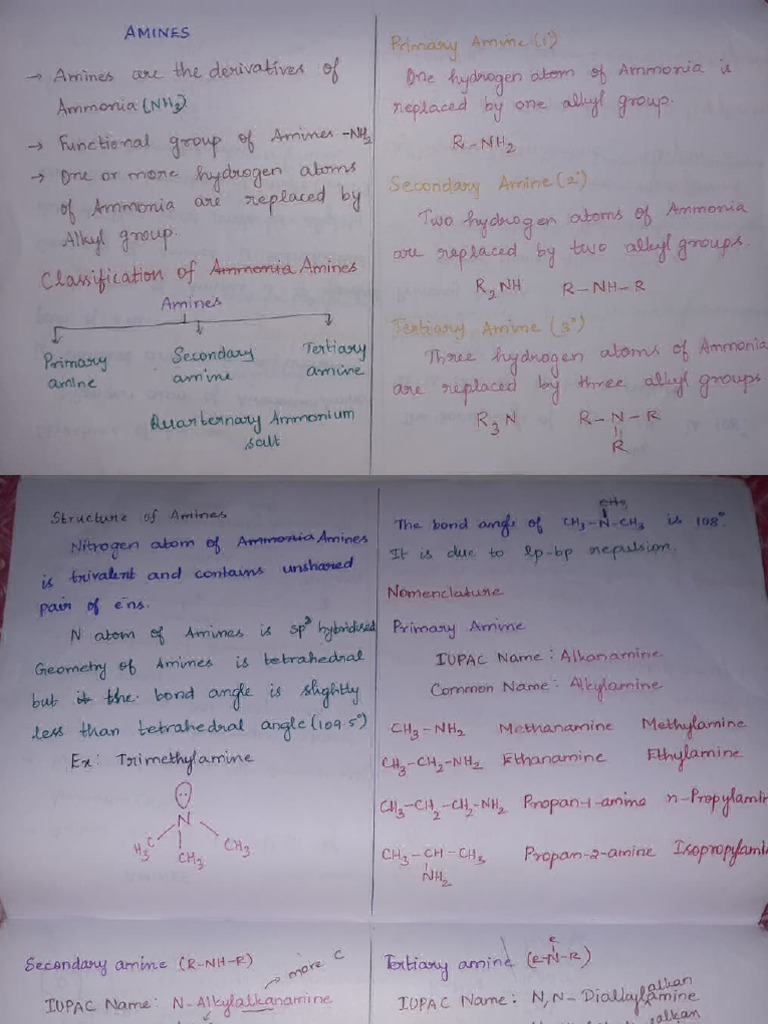 AMINES
→ Amines are the derivatives of
Ammonia (NH3)
→ Functional group of Amines -NH2
→ One or more hydrogen atoms
of Ammonia are replaced by
Alkyl group.
Classification of Ammonia Amines
Amines
Primary amine
Secondary amine
Tertiary amine
Quarternary Ammonium
salt
Primary Amine (1°)
One hydrogen atom of Ammonia is
replaced by one alkyl group.
R-NH2
Secondary Amine (2°)
Two hydrogen atoms of Ammonia
are replaced by two alkyl groups.
R2NH R-NH-R
Tertiary Amine (3°)
Three hydrogen atoms of Ammonia
are replaced by three alkyl groups
R3N R-N-R
R
Structure of Amines
Nitrogen atom of Ammonia Amines
is trivalent and contains unshared
pair of e's.
N atom of Amines is sp3 hybridised
Geometry of Amines is tetrahedral
but it the bond angle is slightly
less than tetrahedral angle (109.5°)
Ex: Trimethylamine
N
H3C CH3 CH3
CH3
The bond angle of CH3-N-CH3 is 108°.
It is due to lp-bp repulsion.
Nomenclature
Primary Amine
IUPAC Name: Alkanamine
Common Name: Alkylamine
CH3-NH2 Methanamine Methylamine
CH3-CH2-NH2 Ethanamine Ethylamine
CH3-CH2-CH2-NH2 Propan-1-amine n-Propylamin
CH3-CH-CH3 Propan-2-amine Isopropylami
NH2
Secondary amine (R-NH-R)
more C
IUPAC Name: N-Alkylalkanamine
Tertiary amine (R-N-R)
IUPAC Name: N,N-Dialkylamine
alkan
alkan